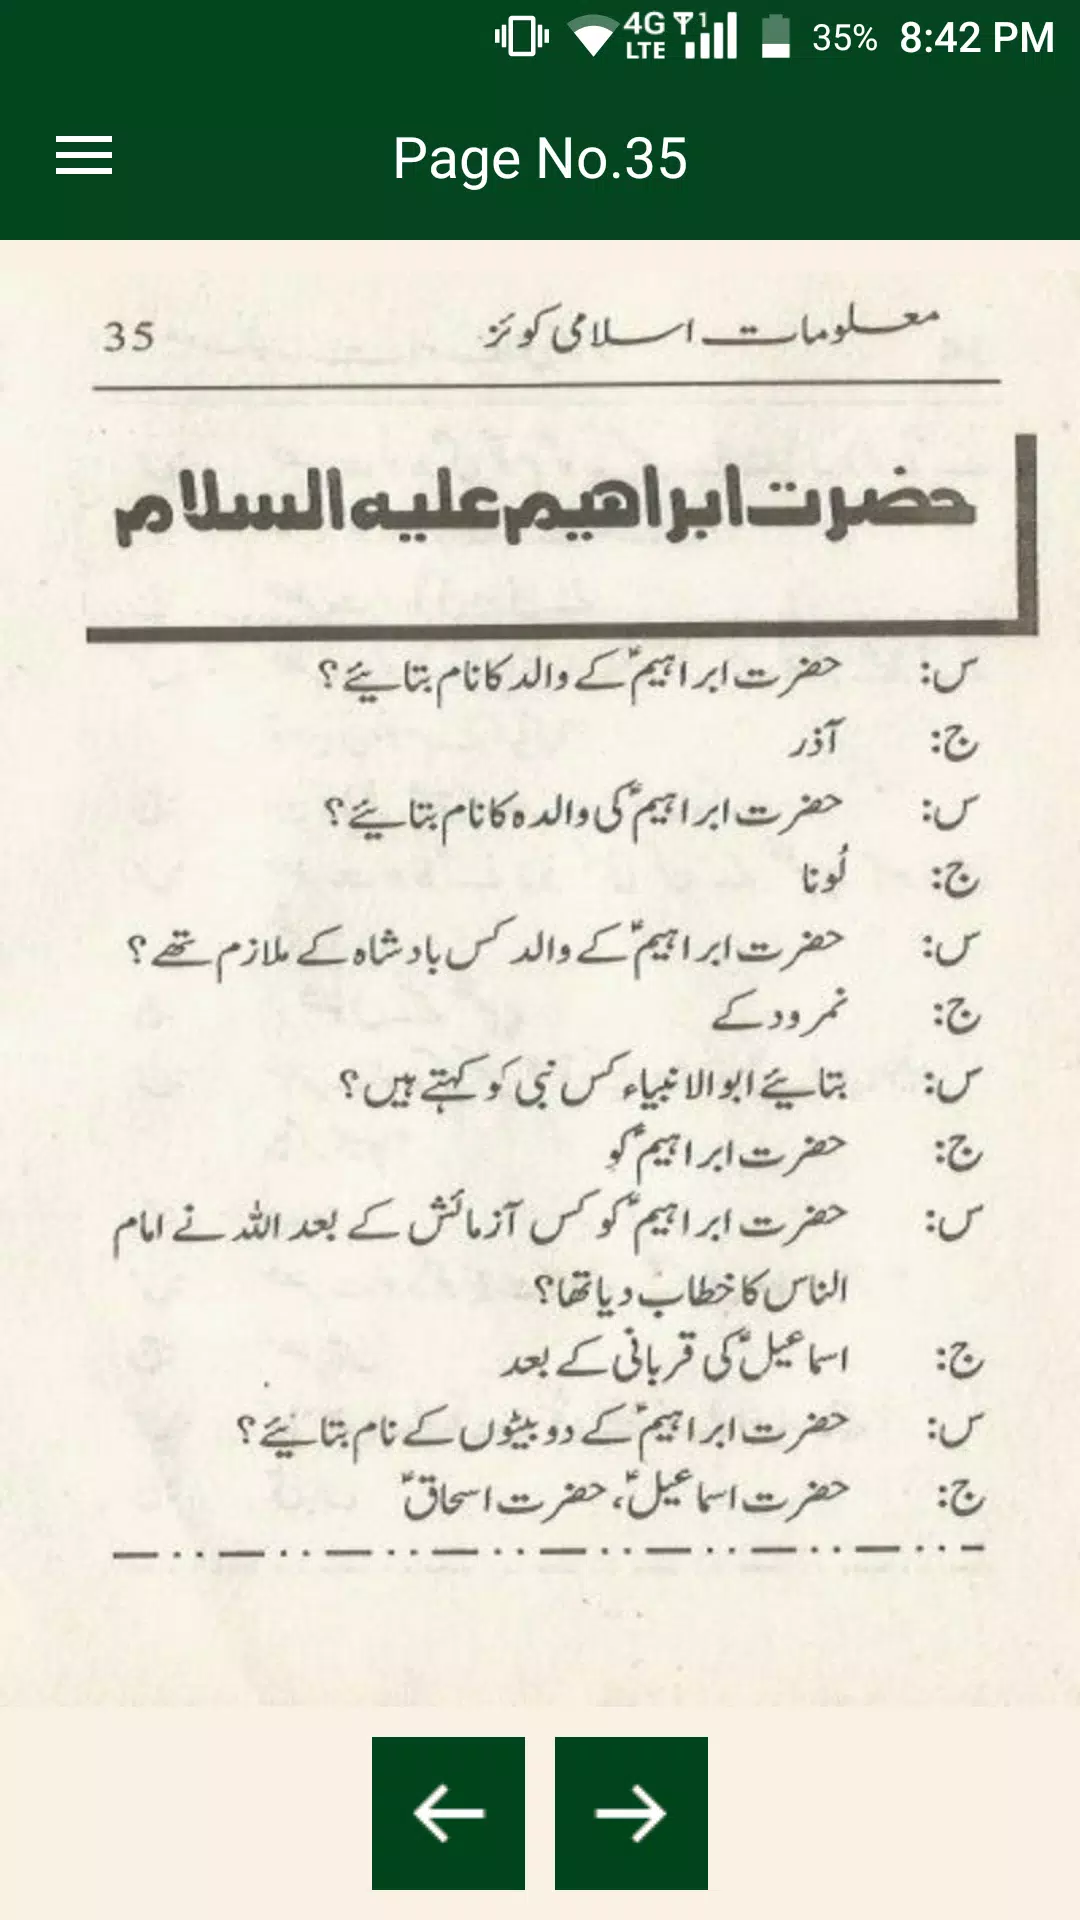 4G LTE 1 35% 8:42 PM
Page No.35
معلومات اسلامی کوئز 35
حضرت ابراهیم علیه السلام
س: حضرت ابراہیمؑ کے والد کا نام بتائیے؟
ج: آذر
س: حضرت ابراہیمؑ کی والدہ کا نام بتائیے؟
ج: لُونا
س: حضرت ابراہیمؑ کے والد کس بادشاہ کے ملازم تھے؟
ج: نمرود کے
س: بتائیے ابوالانبیاء کس نبی کو کہتے ہیں؟
ج: حضرت ابراہیمؑ کو
س: حضرت ابراہیمؑ کو کس آزمائش کے بعد اللہ نے امام
الناس کا خطاب دیا تھا؟
ج: اسماعیلؑ کی قربانی کے بعد
س: حضرت ابراہیمؑ کے دو بیٹوں کے نام بتائیے؟
ج: حضرت اسماعیلؑ، حضرت اسحاقؑ